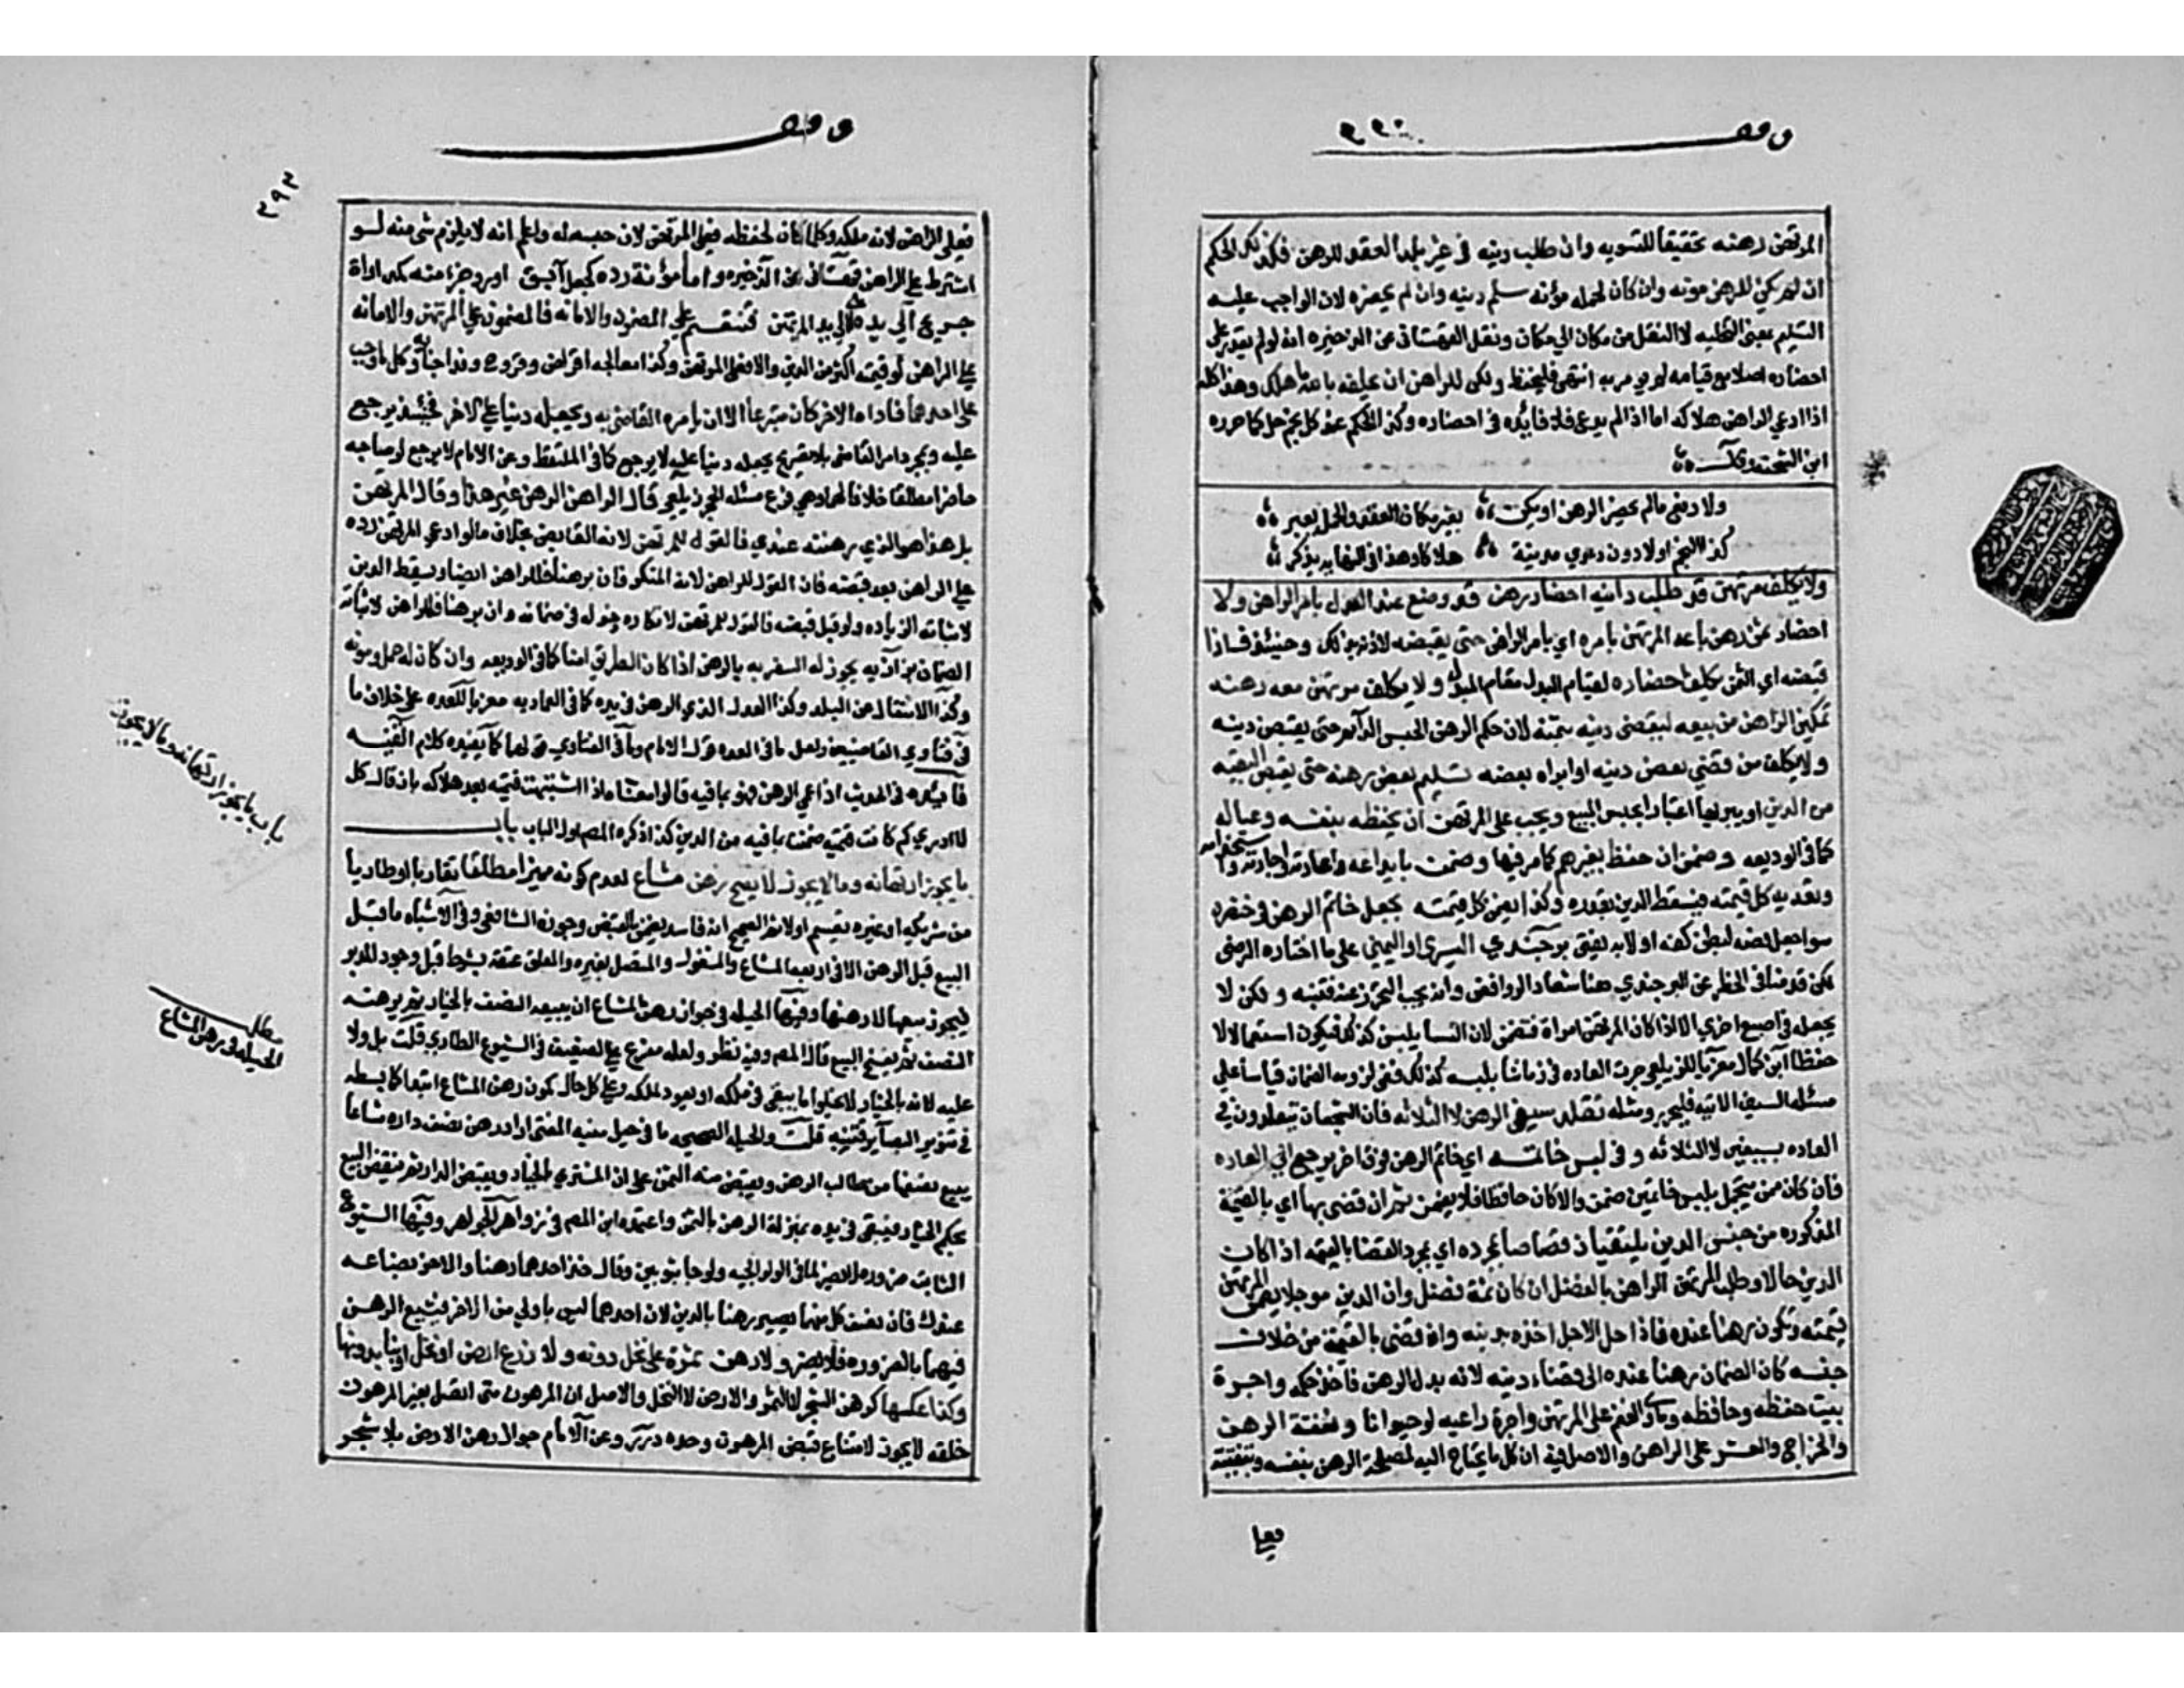 وقف
المرتهن رهنه تحقيقا للتسويه وان طلب دينه في غير بلد العقد للرهن فكذلك الحكم
ان لم يكن للرهن مونه وان كان لحمله مؤنه سلم دينه وان لم يحضره لان الواجب عليه
التسليم بمعنى التخليه لا النقل من مكان الي مكان ونقل القهستاني عن الذخيره انه لو لم يقدر على
احضاره اصلا مع قيامه لم يومر به انتهى فليحفظ ولكن للراهن ان يحلفه بالله ما هلك وهذا كله
اذا ادعي الراهن هلاكه اما اذا لم يدع فلا فايده في احضاره وكذا الحكم عند كل نجم حل كما حرره
ابن الشحنه وقال
ولا دفع مالم يحضر الرهن او يكن بغير مكان العقد والحمل يعسر
كذا النجم او لا دون دعوي مدينه هلاكا وهذا في النهايه يذكر
ولا يكلف مرتهن قد طلب دينه احضار رهن قد وضع عند العدل بامر الراهن ولا
احضار ثمن رهن باعه المرتهن بامره اي بامر الراهن حتى يقبضه لاذنه بذلك وحينئذ فاذا
قبضه اي الثمن يكلف احضاره لقيام البدل مقام المبدل ولا يكلف مرتهن معه رهنه
تمكين الراهن من بيعه ليقضى دينه بثمنه لان حكم الرهن الحبس الدائم حتى يقبض دينه
ولا يكلف من قضي بعض دينه او ابراه بعضه تسليم بعض رهنه حتى يقبض البقيه
من الدين او يبريها اعتبارا بحبس المبيع ويجب على المرتهن ان يحفظه بنفسه وعياله
كما في الوديعه وضمن ان حفظ بغيرهم كما مر فيها وضمن بايداعه واعارته واجارته واستخدامه
وتعديه كل قيمته فيسقط الدين بقدره وكذا يضمن كل قيمته بجعل خاتم الرهن في خنصره
سوا جعل فصه لبطن كفه او لا به يفتي برجندي اليسري او اليمني على ما اختاره الرضى
لكن قدمنا في الحظر عن البرجندي هنا شعار الروافض وانه يجب التحرز عنه فتنبه ولكن لا
يجعله في اصبع اخري الا اذا كان المرتهن امراة فتضمن لان النسا يلبسن كذلك فيكون استعمالا لا
حفظا ابن كمال معزيا للزيلعي وجرت العاده في زماننا بلبسه كذلك فينبغي لزوم الضمان قياسا على
مسئله السيف الاتيه فليحرر ومثله تقلد سيفي الرهن لا الثلاثه فان الشجعان يتقلدون في
العاده بسيفين لا الثلاثه وفي لبس خاتمه اي خاتم الرهن فوق اخر يرجع الي العاده
فان كان ممن يتجمل بلبس خاتمين ضمن والا كان حافظا فلا يضمن ثم ان قضى بها اي بالقيمة
المذكوره من جنس الدين يلتقيان قصاصا بمجرده اي بمجرد القضا بالقيمه اذا كان
الدين حالا وطلب المرتهن الراهن بالفضل ان كان ثمة فضل وان الدين موجلا يضمن المرتهن
قيمته وتكون رهنا عنده فاذا حل الاجل اخذه بدينه وان قضى بالقيمة من خلاف
جنسه كان الضمان رهنا عنده الى قضاء دينه لانه بدل الرهن فاخذ حكمه واجرة
بيت حفظه وحافظه ومأوي الغنم على المرتهن واجرة راعيه لو حيوانا ونفقة الرهن
والخراج والعشر على الراهن والاصل فيه ان كل ما يحتاج اليه لمصلحة الرهن بنفسه وتبقيته
فعلي
وقف
٢٩٣
فعلى الراهن لانه ملكه وكلما كان لحفظه فعلى المرتهن لان حبسه له واعلم انه لا يلزم شي منه لو
اشترط على الراهن قهستاني عن الذخيره واما مؤنة رده كجعل آبق او رد جزء منه كمداواة
جريح الي يد الي يد المرتهن فتنقسم على المضمون والامانه فالمضمون علي المرتهن والامانه
علي الراهن لو قيمته اكثر من الدين والا فعلى المرتهن وكذا معالجه امراض وقروح وفدا جنايه وكل ما وجب
على احدهما فاداه الاخر كان متبرعا الا ان يامره القاضي به ويجعله دينا على الاخر فحينئذ يرجع
عليه وبمجرد امر القاضي بلا تصريح بجعله دينا عليه لا يرجع كما في الملتقط وعن الامام لا يرجع لو صاحبه
حاضرا مطلقا خلافا لهما وهي فرع مسئله الحجر زيلعي قال الراهن الرهن غير هذا وقال المرتهن
بل هذا هو الذي رهنته عندي فالقول للمرتهن لانه القابض بخلاف مالو ادعي المرتهن رده
علي الراهن بعد قبضه فان القول للراهن لانه المنكر فان برهنا فللراهن ايضا ويسقط الدين
لاثباته الزياده ولو قبل قبضه فالقول للمرتهن لانكاره دخوله في ضمانه وان برهنا فللراهن لاثباته
الضمان بزازيه يجوز له السفر به بالرهن اذا كان الطريق امنا كما في الوديعه وان كان له حمل ومونه
وكذا الانتقال عن البلد وكذا العدل الذي الرهن في يده كما في العماديه معزيا للعده على خلاف ما
في فتاوي القاضيين ولعل ما في العده قول الامام وما في الفتاوي قولهما كما يفيده كلام القنيه
فايده في الحديث اذا عمي الرهن فهو بما فيه قالوا معناه اذا اشتبهت قيمته بعد هلاكه بان قال كل
لا ادري كم كانت قيمته ضمنت بما فيه من الدين كذا ذكره المص اول الباب باب
ما يجوز ارتهانه وما لا يجوز لا يصح رهن مشاع لعدم كونه مميزا مطلقا مقارنا او طاريا
من شريكه او غيره يقسم او لا ثم الصحيح انه فاسد يضمن بالقبض وجوزه الشافعي وفي الاشباه ما قبل
البيع قبل الرهن الا في اربعه المشاع والمشغول والمتصل بغيره والمعلق عتقه بشرط قبل وجوده
فيجوز بيعها لا رهنها وفيها الحيله في جواز رهن المشاع ان يبيعه النصف بالخيار ثم يرهنه
النصف ثم يفسخ البيع قال المص وفيه نظر ولعله مفرع علي الضعيف في الشيوع الطاري قلت بل ولا
عليه لانه بالخيار لا يخلوا اما يبقى في ملكه او يعود لملكه وعلى كل حال يكون رهن المشاع ابتدا كما بسطه
في تنوير البصاير فتنبه قلت والحيله الصحيحه ما في حيل منيه المفتي اراد رهن نصف داره مشاعا
يبيع نصفها من طالب الرهن ويقبض منه الثمن على ان المشتري بالخيار ويقبض الدار ثم ينقض البيع
بحكم الخيار فيبقى في يده بمنزلة الرهن بالثمن واعتمده ابن المص في زواهر الجواهر وفيها الشيوع
الثابت ضروره لا يضر لما في الولوالجيه ولو جا بثوبين وقال خذ احدهما رهنا والاخر بضاعه
عندك فان نصف كل منهما يصير رهنا بالدين لان احدهما ليس باولي من الاخر فيشيع الرهن
فيهما بالضروره فلا يضر ولا رهن ثمره على نخل دونه ولا زرع ارض او نخل او بنا بدونها
وكذا عكسها كرهن الشجر لا الثمر والارض لا النخل والاصل ان المرهون متى اتصل بغير المرهون
خلقه لا يجوز لامتناع قبض المرهون وحده درر وعن الامام جواز رهن الارض بلا شجر
باب ما يجوز ارتهانه وما لا يجوز
مطلب
الحيله في رهن المشاع